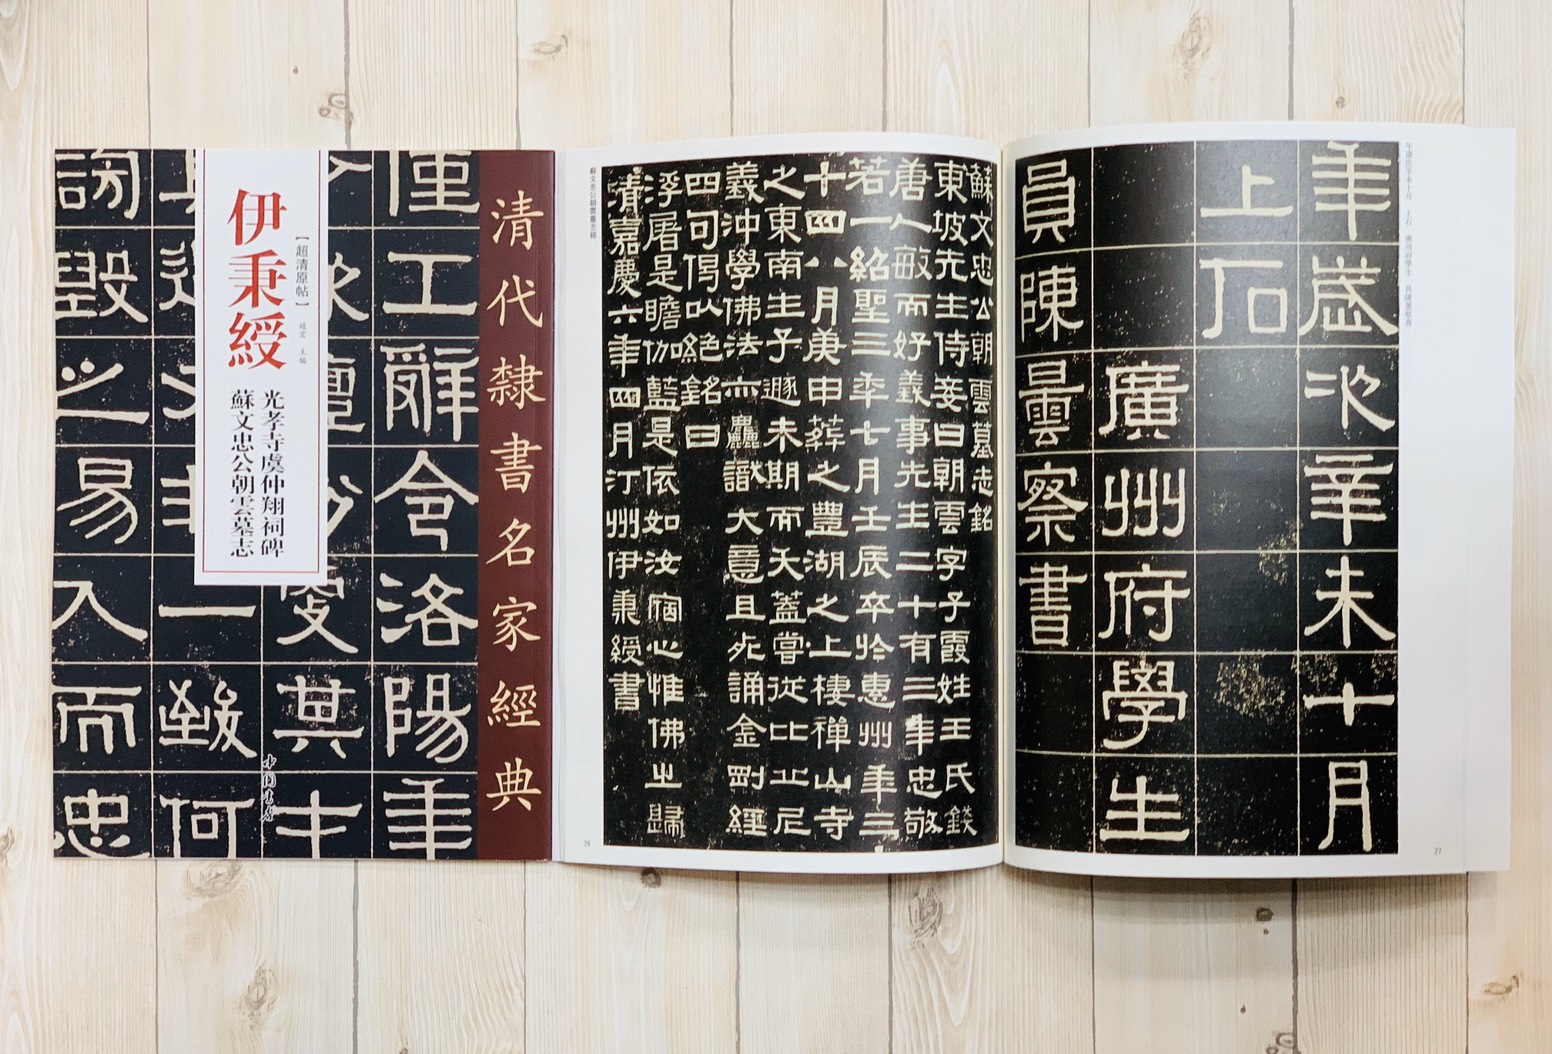 清代隸書名家經典
【超清原帖】
趙宏 主編
伊秉綬
光孝寺虞仲翔祠碑
蘇文忠公朝雲墓志
中國書店
僅工辭令洛陽年
其
一致何
謗毀之易入而忠
蘇文忠公朝雲墓志銘
東坡先生侍妾曰朝雲字子霞姓王氏錢
唐人敏而好義事先生二十有三年忠敬
若一紹聖三年七月壬辰卒於惠州年三
十四八月庚申葬之豐湖之上棲禪山寺
之東南生子遯未期而夭蓋嘗從比丘尼
義沖學佛法亦麤識大意且死誦金剛經
四句偈以絕銘曰
浮屠是瞻伽藍是依如汝宿心惟佛之歸
清嘉慶六年四月汀州伊秉綬書
蘇文忠公朝雲墓志銘
26
年歲次辛未十月 上石 廣州府學生 員陳曇察書
年歲次辛未十月
上石
廣州府學生
員陳曇察書
27